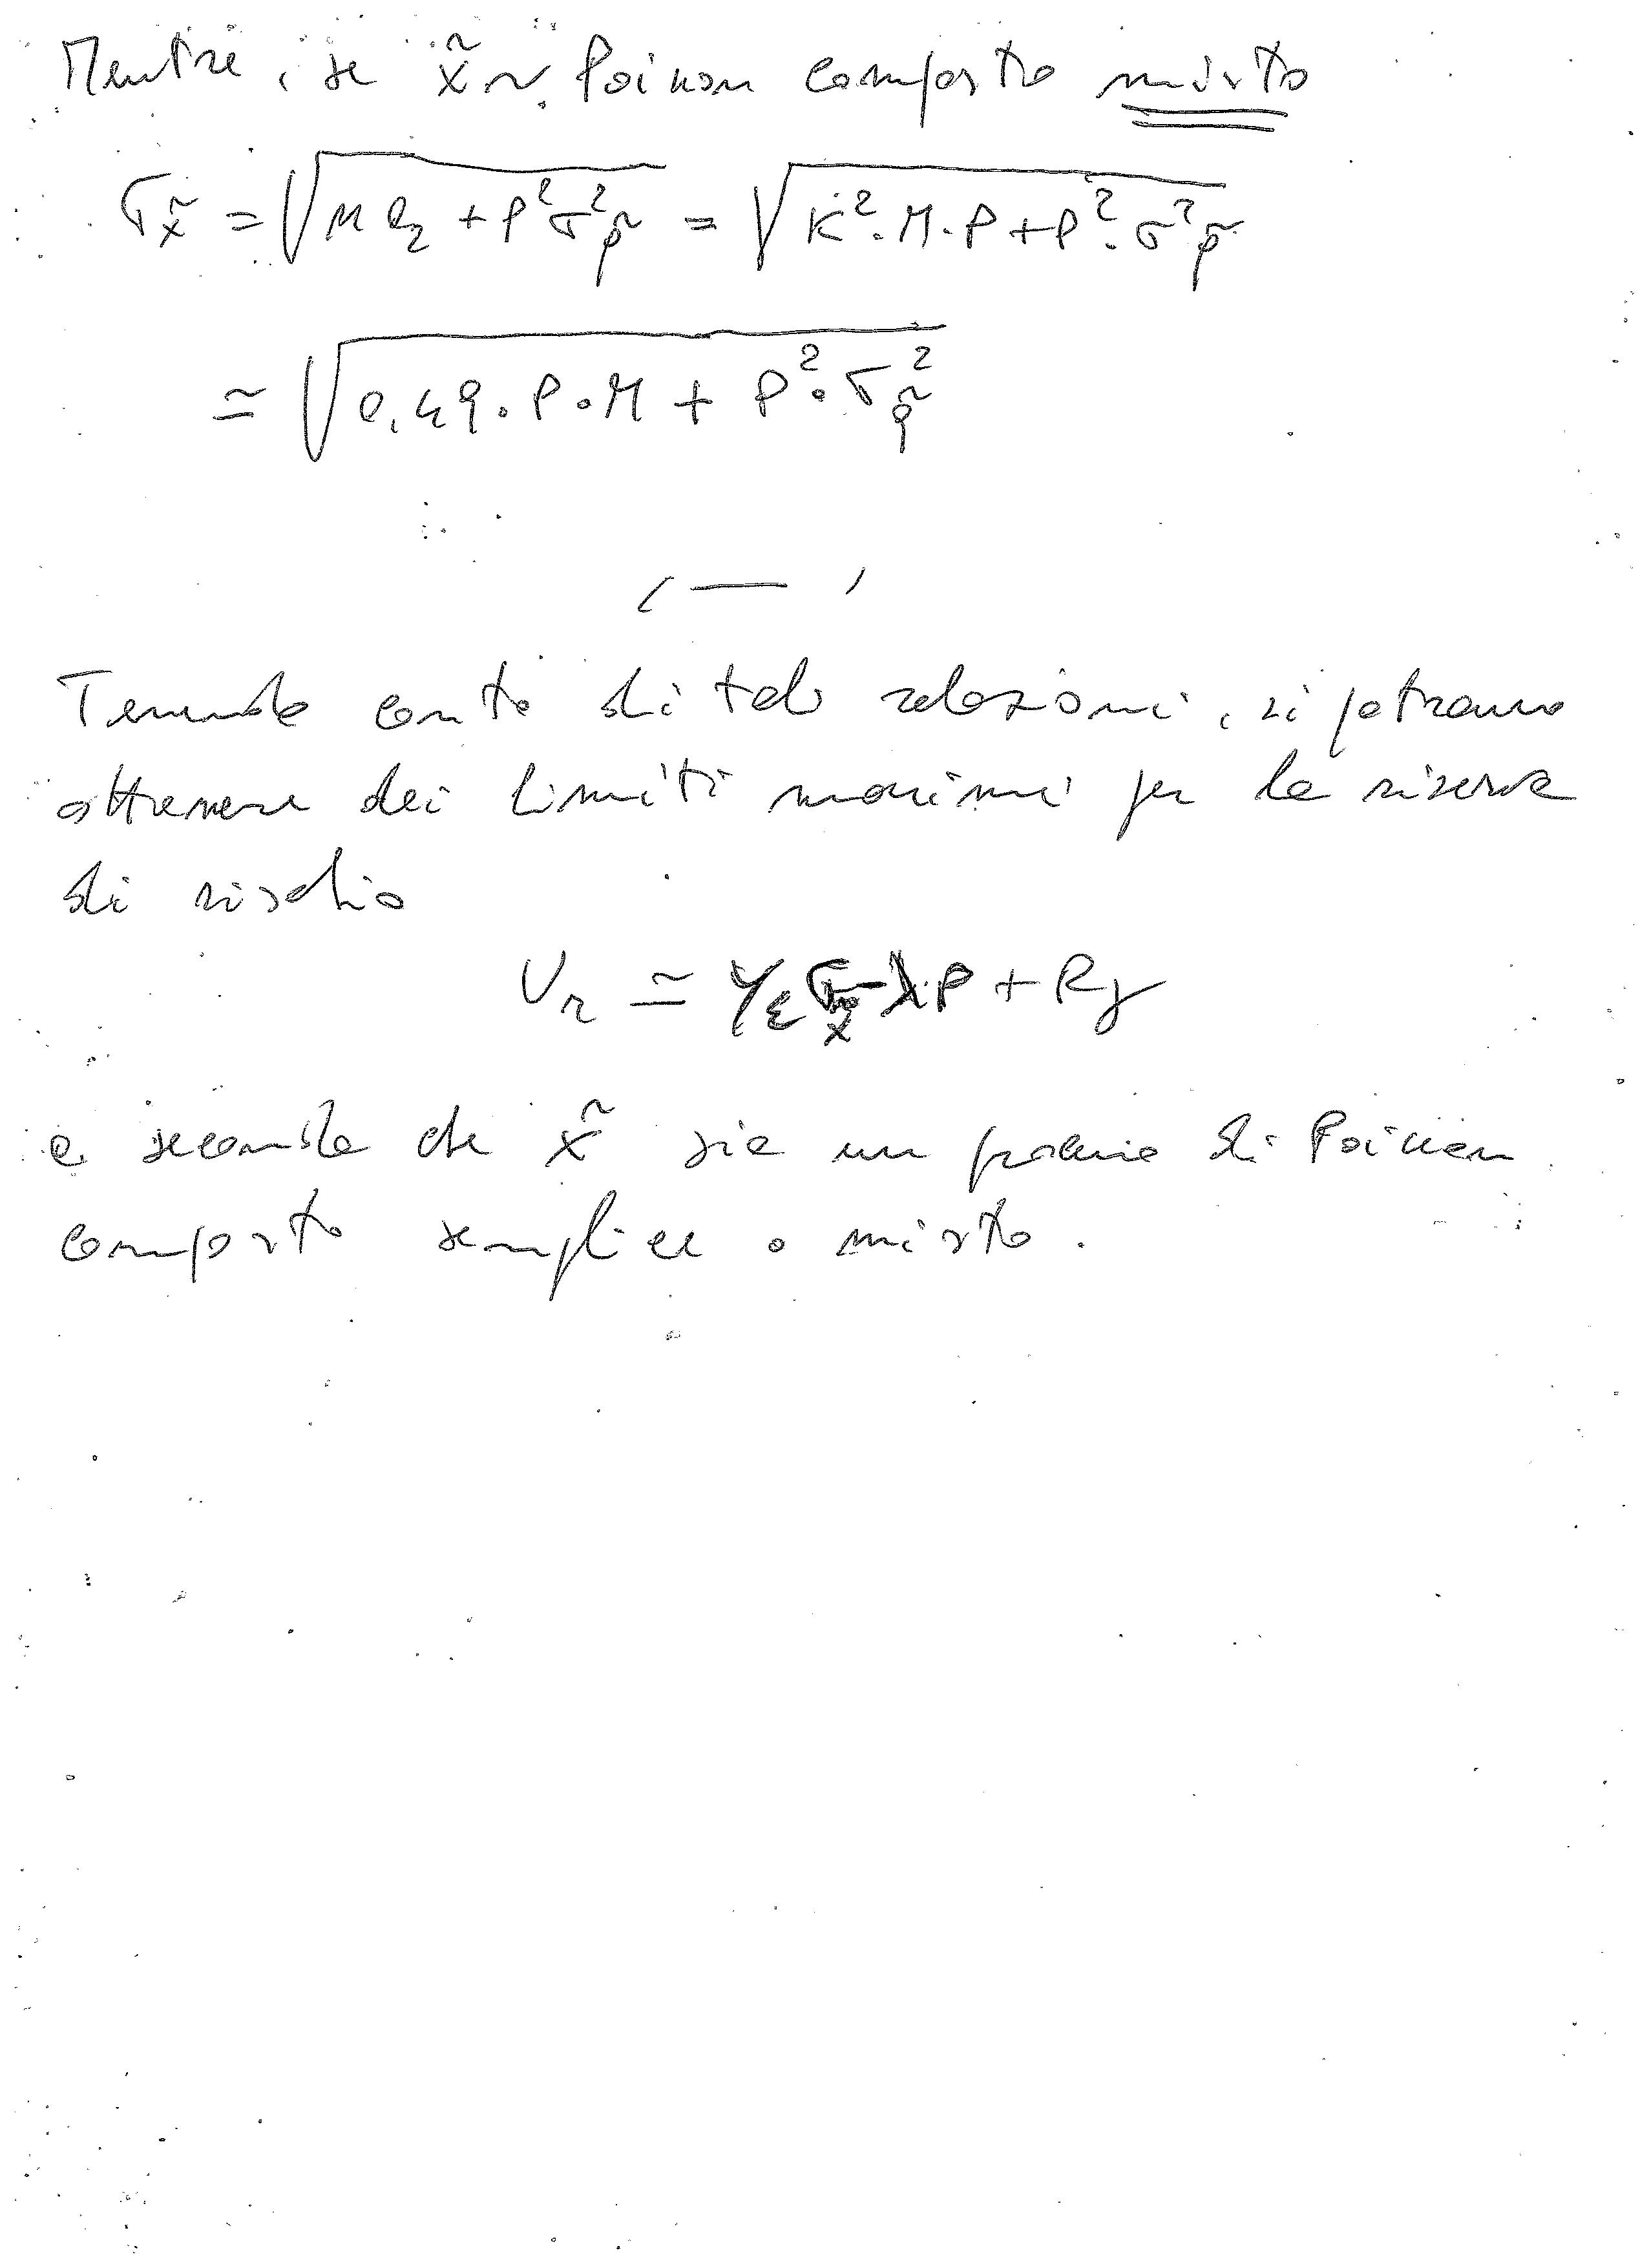 Mentre, se x̃ ~ Poisson composto misto
σx̃ = √(n a₂ + P²σ²q̃) = √(K²·M·P + P²·σ²q̃)
≃ √(0,49·P·M + P²·σq̃²)
Tenendo conto di tali relazioni, si potranno
ottenere dei limiti massimi per la riserva
di rischio
Ur ≃ yε σx̃ - λP + Rγ
a seconda che x̃ sia un processo di Poisson
composto semplice o misto.